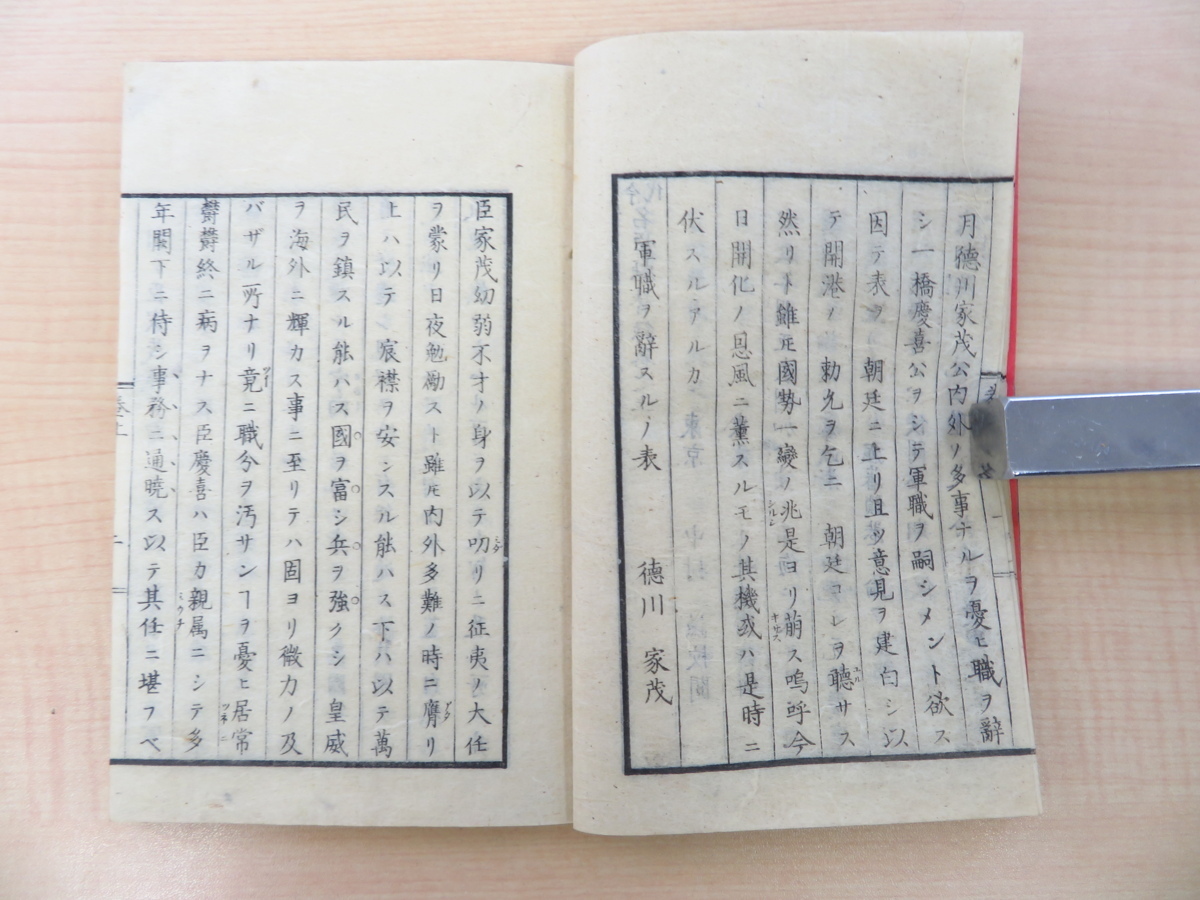 月德川家茂公內外ノ多事ナルヲ憂ヒ職ヲ辭
シ一橋慶喜公ヲシテ軍職ヲ嗣シメント欲ス
因テ表ヲ 朝廷ニ上リ且ツ意見ヲ建白シ以
テ開港ノ 勅允ヲ乞ニ 朝廷コレヲ聽サス
然リト雖モ國勢一變ノ兆是ヨリ萠ス嗚呼今
日開化ノ恩風ニ薫スルモノ其機或ハ是時ニ
伏スルアルカ
軍職ヲ辭スルノ表 德川 家茂
臣家茂幼弱不才ノ身ヲ以テ叨リニ征夷ノ大任
ヲ蒙リ日夜勉勵スト雖モ内外多難ノ時ニ膺リ
上ハ以テ 宸襟ヲ安シスル能ハス下ハ以テ萬
民ヲ鎮スル能ハス國ヲ富シ兵ヲ強クシ皇威
ヲ海外ニ輝カス事ニ至リテハ固ヨリ微力ノ及
バザル所ナリ竟ニ職分ヲ汚サンヿヲ憂ヒ居常
欝欝終ニ病ヲナス臣慶喜ハ臣カ親属ニシテ多
年闕下ニ侍シ事務ニ通曉ス以テ其任ニ堪フベ